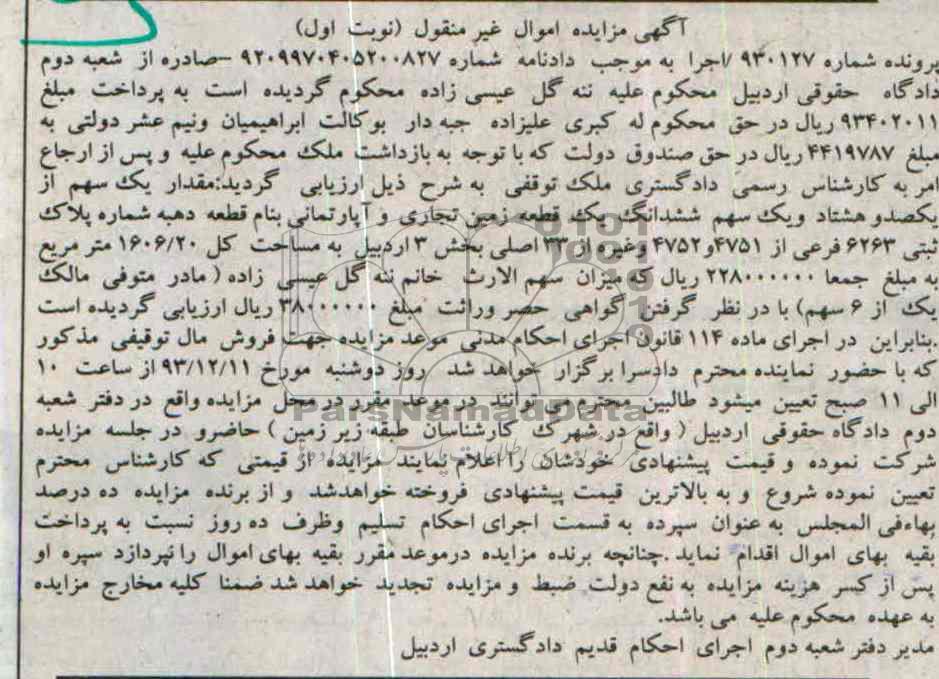 آگهی مزایده اموال غیر منقول (نوبت اول)
پرونده شماره ۹۳۰۱۲۷ /اجرا به موجب دادنامه شماره ۹۲۰۹۹۷۰۴۰۵۲۰۰۸۲۷ –صادره از شعبه دوم
دادگاه حقوقی اردبیل محکوم علیه ننه گل عیسی زاده محکوم گردیده است به پرداخت مبلغ
۹۳۴۰۲۰۱۱ ریال در حق محکوم له کبری علیزاده جبه دار بوکالت ابراهیمیان ونیم عشر دولتی به
مبلغ ۴۴۱۹۷۸۷ ریال در حق صندوق دولت که با توجه به بازداشت ملک محکوم علیه و پس از ارجاع
امر به کارشناس رسمی دادگستری ملک توقفی به شرح ذیل ارزیابی گردید:مقدار یک سهم از
یکصدو هشتاد ویک سهم ششدانگ یک قطعه زمین تجاری و آپارتمانی بنام قطعه دهبه شماره پلاک
ثبتی ۶۲۶۳ فرعی از ۴۷۵۱و۴۷۵۲ وغیره از ۳۳ اصلی بخش ۳ اردبیل به مساحت کل ۱۶۰۶/۲۰ متر مربع
به مبلغ جمعا ۲۲۸۰۰۰۰۰۰ ریال که میزان سهم الارث خانم ننه گل عیسی زاده ( مادر متوفی مالک
یک از ۶ سهم) با در نظر گرفتن گواهی حصر وراثت مبلغ ۳۸۰۰۰۰۰۰ ریال ارزیابی گردیده است
.بنابراین در اجرای ماده ۱۱۴ قانون اجرای احکام مدنی موعد مزایده جهت فروش مال توقیفی مذکور
که با حضور نماینده محترم دادسرا برگزار خواهد شد روز دوشنبه مورخ ۹۳/۱۲/۱۱ از ساعت ۱۰
الی ۱۱ صبح تعیین میشود طالبین محترم می توانند در موعد مقرر در محل مزایده واقع در دفتر شعبه
دوم دادگاه حقوقی اردبیل ( واقع در شهرک کارشناسان طبقه زیر زمین ) حاضرو در جلسه مزایده
شرکت نموده و قیمت پیشنهادی خودشان را اعلام نمایند مزایده از قیمتی که کارشناس محترم
تعیین نموده شروع و به بالاترین قیمت پیشنهادی فروخته خواهدشد و از برنده مزایده ده درصد
بهاءفی المجلس به عنوان سپرده به قسمت اجرای احکام تسلیم وظرف ده روز نسبت به پرداخت
بقیه بهای اموال اقدام نماید .چنانچه برنده مزایده درموعد مقرر بقیه بهای اموال را نپردازد سپره او
پس از کسر هزینه مزایده به نفع دولت ضبط و مزایده تجدید خواهد شد ضمنا کلیه مخارج مزایده
به عهده محکوم علیه می باشد.
مدیر دفتر شعبه دوم اجرای احکام قدیم دادگستری اردبیل
ParsNamadData